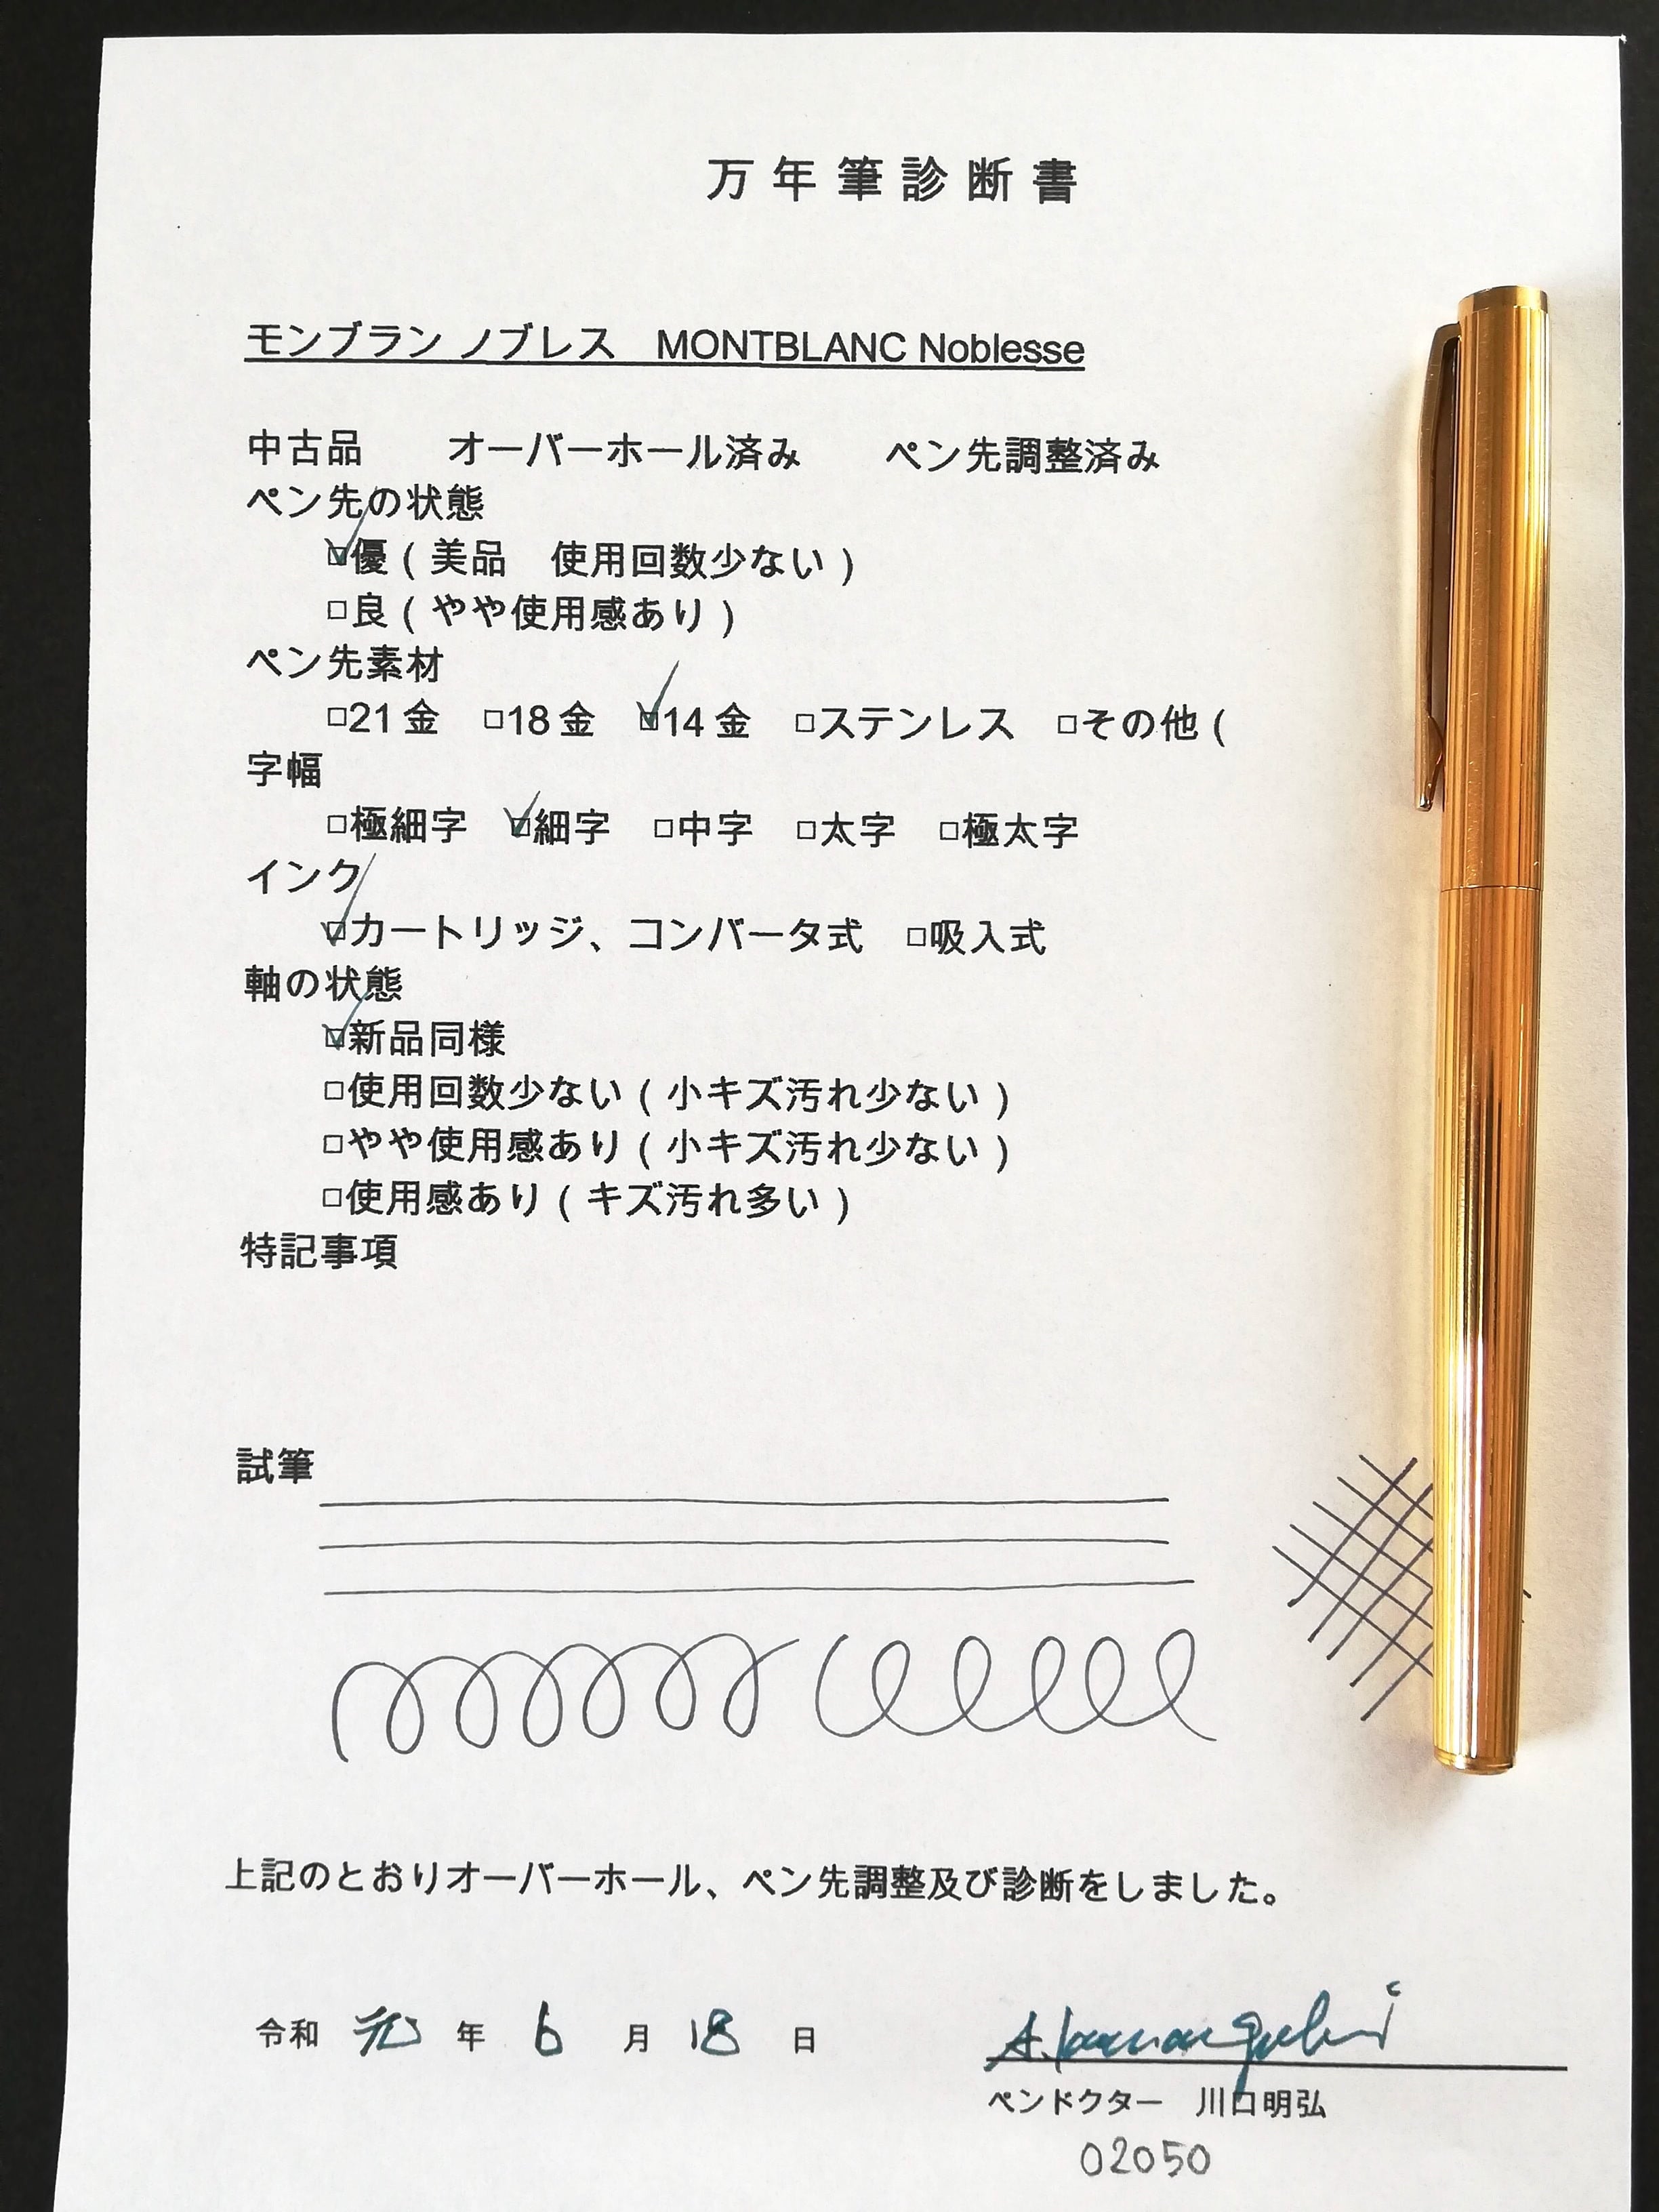 万年筆診断書
モンブラン ノブレス　MONTBLANC Noblesse
中古品　　オーバーホール済み　　ペン先調整済み
ペン先の状態
☑優（美品　使用回数少ない）
□良（やや使用感あり）
ペン先素材
□21金　□18金　☑14金　□ステンレス　□その他（
字幅
□極細字　☑細字　□中字　□太字　□極太字
インク
☑カートリッジ、コンバータ式　□吸入式
軸の状態
☑新品同様
□使用回数少ない（小キズ汚れ少ない）
□やや使用感あり（小キズ汚れ少ない）
□使用感あり（キズ汚れ多い）
特記事項
試筆
上記のとおりオーバーホール、ペン先調整及び診断をしました。
令和 元 年 6 月 18 日
A. Kawaguchi
ペンドクター　川口明弘
02050